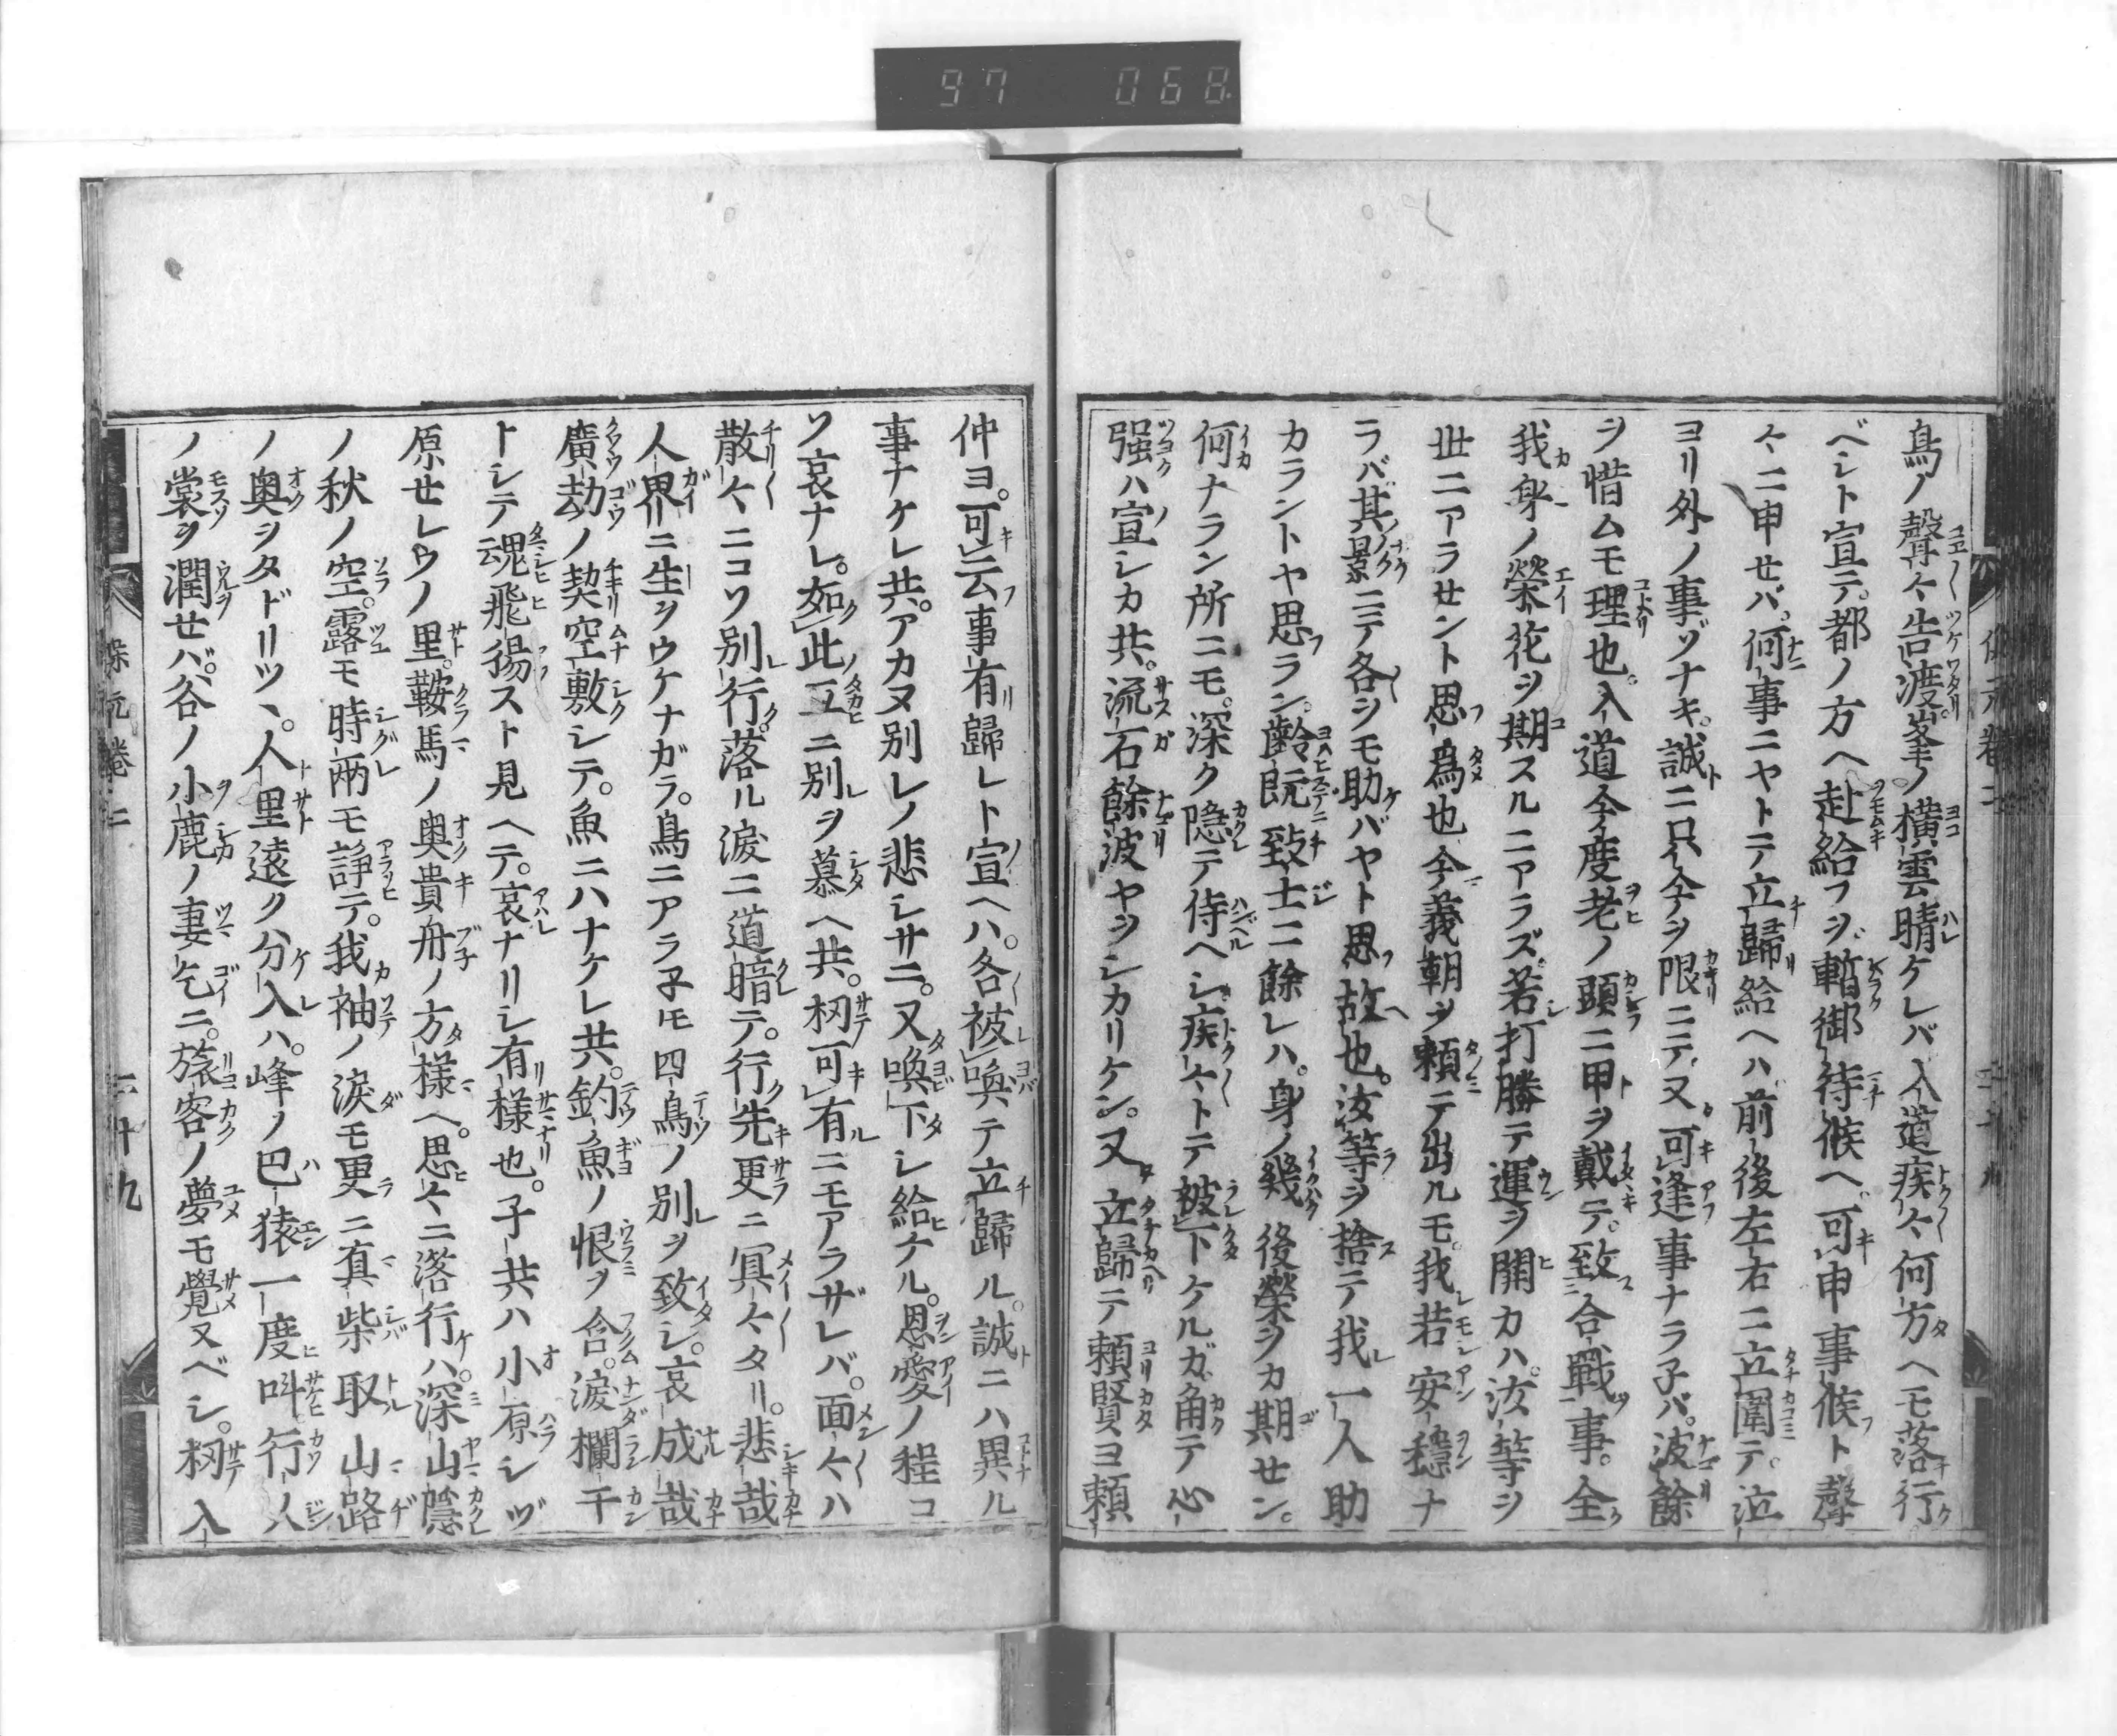 97 068
鳥ノ聲々告渡峯ノ横雲晴ケレバ入道疾々何方ヘモ落行
ベシト宣テ都ノ方ヘ赴給フヲ暫御待候ヘ可申事候ト聲
々ニ申セバ何事ニヤトテ立歸給ヘハ前後左右ニ立圍テ泣
ヨリ外ノ事ゾナキ誠ニ只今ヲ限ニテ又可逢事ナラ子バ波餘
ヲ惜ムモ理也入道今度老ノ頭ニ甲ヲ戴テ致合戰事全
我身ノ榮花ヲ期スルニアラズ若打勝テ運ヲ開カハ汝等ヲ
世ニアラセント思爲也今義朝ヲ頼テ出ルモ我若安穩ナ
ラバ其景ニテ各シモ助バヤト思故也汝等ヲ捨テ我一人助
カラントヤ思ラン齡既致士ニ餘レハ身ノ幾後榮ヲカ期セン
何ナラン所ニモ深ク隱テ侍ヘシ疾々トテ被下ケルガ角テ心
强ハ宣シカ共流石餘波ヤヲシカリケン又立歸テ頼賢ヨ頼
仲ヨ可云事有歸レト宣ヘハ各被喚テ立歸ル誠ニハ異ル
事ナケレ共アカヌ別レノ悲シサニ又喚下シ給ナル恩愛ノ程コ
ソ哀ナレ如此互ニ別ヲ慕ヘ共扨可有ニモアラザレバ面々ハ
散々ニコソ別行落ル淚ニ道暗テ行先更ニ冥々タリ悲哉
人界ニ生ヲウケナガラ鳥ニアラ子モ四鳥ノ別ヲ致シ哀成哉
廣劫ノ契空敷シテ魚ニハナケレ共釣魚ノ恨ヲ含淚欄干
トシテ魂飛揚スト見ヘテ哀ナリシ有樣也子共ハ小原シヅ
原セレウノ里鞍馬ノ奥貴舟ノ方樣ヘ思々ニ落行ハ深山隱
ノ秋ノ空露モ時雨モ諍テ我袖ノ淚モ更ニ真柴取山路
ノ奥ヲタドリツヽ人里遠ク分入ハ峰ノ巴猿一度叫行人
ノ裳ヲ潤セバ谷ノ小鹿ノ妻乞ニ旅客ノ夢モ覺ヌベシ扨入
保元巻二 二十九